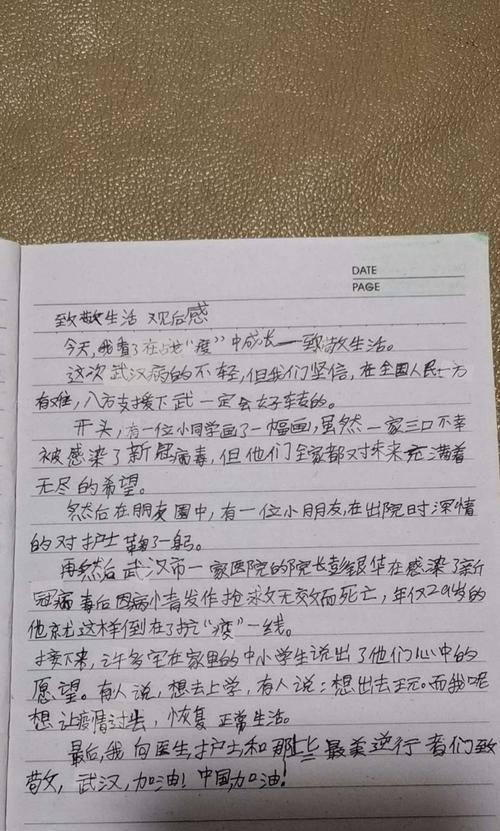 DATE
PAGE
致敬生活 观后感
今天,我看了在战“疫”中成长——致敬生活。
这次武汉病的不轻,但我们坚信,在全国人民一方
有难,八方支援下武一定会好转的。
开头,有一位小同学画了一幅画,虽然一家三口不幸
被感染了新冠病毒,但他们全家都对未来充满着
无尽的希望。
然后在朋友圈中,有一位小朋友,在出院时深情
的对护士鞠了一躬。
再然后武汉市一家医院的院长彭银华在感染了新
冠病毒后因病毒发作抢救无效而死亡,年仅29岁的
他就这样倒在了抗“疫”一线。
接下来,许多宅在家里的中小学生说出了他们心中的
愿望。有人说,想去上学,有人说:想出去玩。而我呢
想让疫情过去,恢复正常生活。
最后,我向医生,护士和那些最美逆行者们致
敬,武汉,加油!中国,加油!